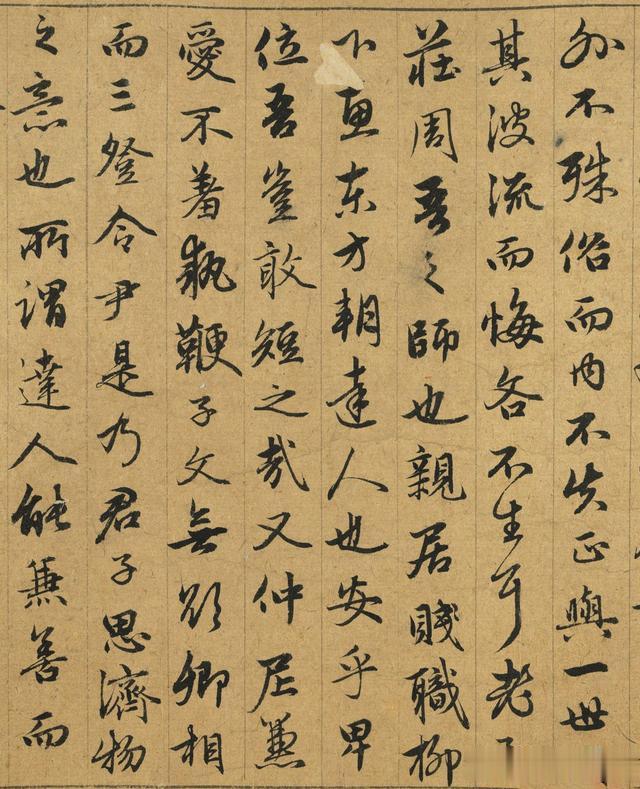 外不殊俗而内不失正與一世
其波流而悔吝不生耳老
莊周吾之師也親居賤職柳
下惠東方朔達人也安乎卑
位吾豈敢短之哉又仲尼兼
愛不羞執鞭子文無欲卿相
而三登令尹是乃君子思濟物
之意也所謂達人能兼善而